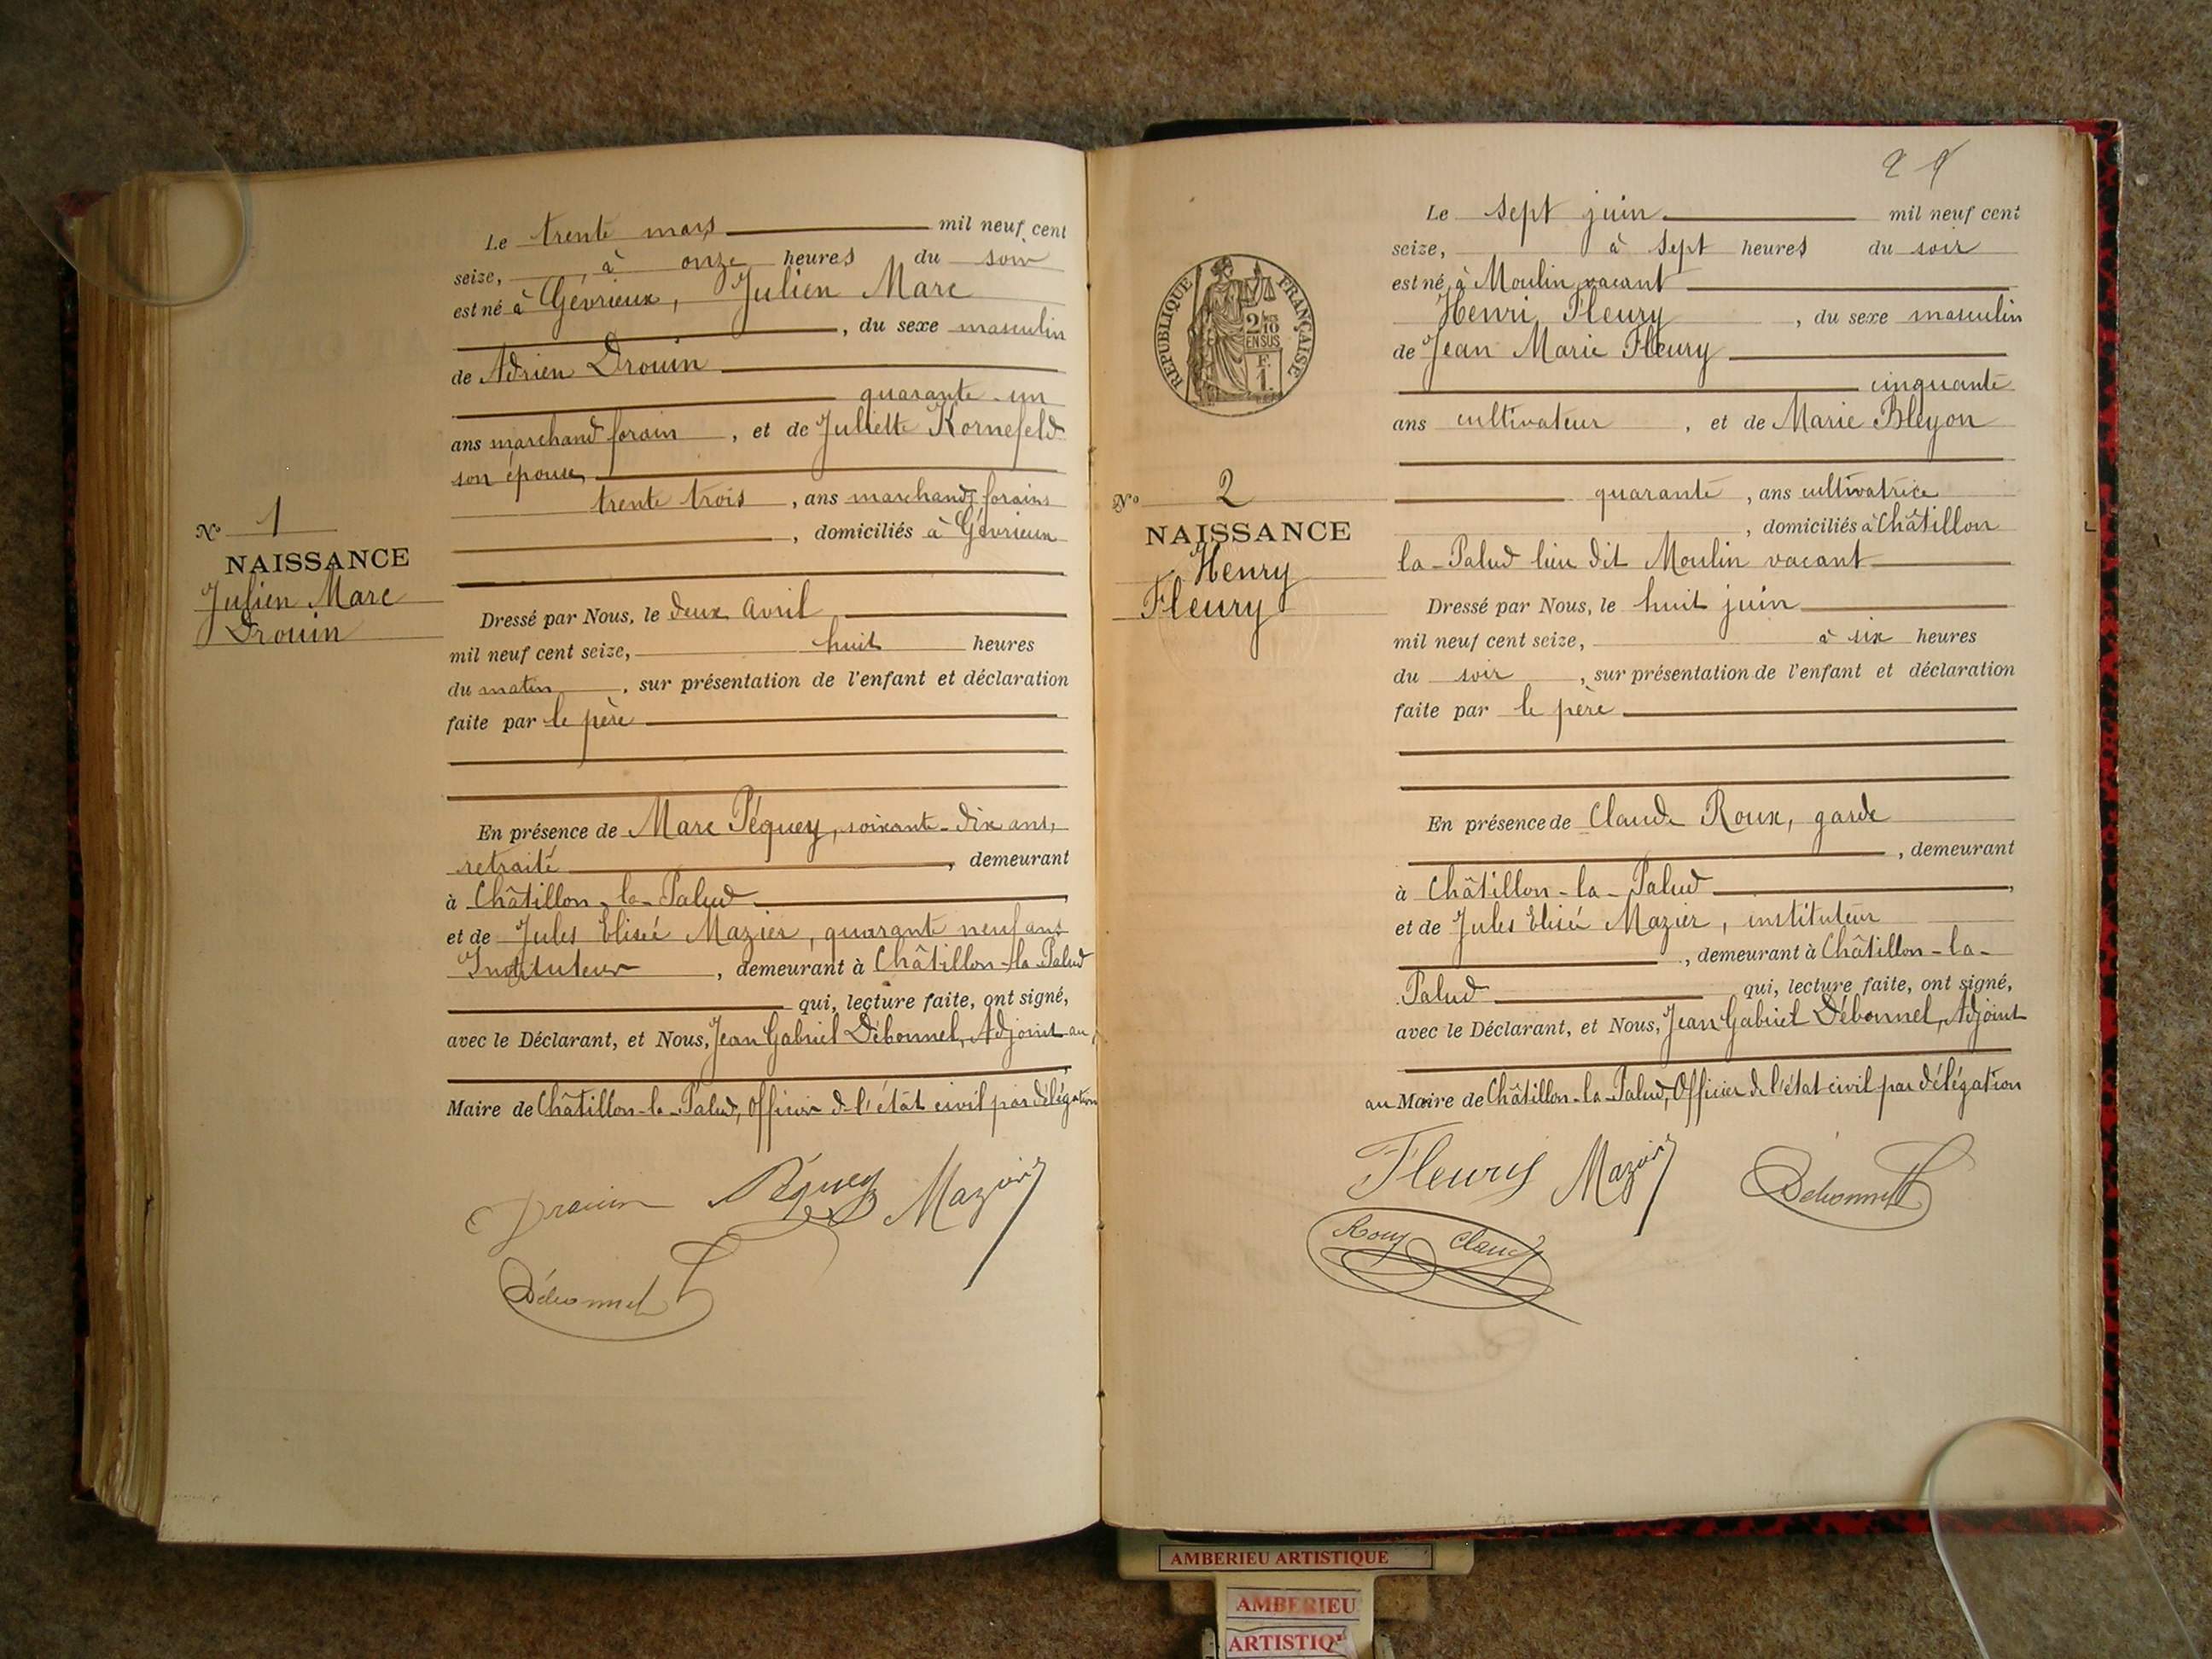 Le trente mars mil neuf cent
seize, à onze heures du soir
est né à Gévrieux, Julien Marc
, du sexe masculin
de Adrien Drouin
quarante-un
ans marchand forain, et de Juliette Kornefeld
son épouse,
trente trois, ans marchands forains
, domiciliés à Gévrieux
N° 1
NAISSANCE
Julien Marc
Drouin
Dressé par Nous, le deux Avril
mil neuf cent seize, huit heures
du matin, sur présentation de l'enfant et déclaration
faite par le père
En présence de Marc Péquey, soixante-dix ans,
retraité, demeurant
à Châtillon-la-Palud,
et de Jules Elisée Mazier, quarante neuf ans
Instituteur, demeurant à Châtillon-la-Palud
qui, lecture faite, ont signé,
avec le Déclarant, et Nous, Jean Gabriel Débonnel, Adjoint au
Maire de Châtillon-la-Palud, Officier de l'état civil par délégation
Drouin Péquey Mazier
Débonnel
Le sept juin mil neuf cent
seize, à sept heures du soir
est né à Moulin vacant
Henri Fleury, du sexe masculin
de Jean Marie Fleury
cinquante
ans cultivateur, et de Marie Bleyon
quarante, ans cultivatrice
, domiciliés à Châtillon
la-Palud lieu dit Moulin vacant
RÉPUBLIQUE FRANÇAISE
2/10
EN SUS
F.
1.
N° 2
NAISSANCE
Henry
Fleury
Dressé par Nous, le huit juin
mil neuf cent seize, à six heures
du soir, sur présentation de l'enfant et déclaration
faite par le père
En présence de Claude Roux, garde
, demeurant
à Châtillon-la-Palud,
et de Jules Elisée Mazier, instituteur
, demeurant à Châtillon-la-
Palud qui, lecture faite, ont signé,
avec le Déclarant, et Nous, Jean Gabriel Débonnel, Adjoint
au Maire de Châtillon-la-Palud, Officier de l'état civil par délégation
Fleury Mazier Débonnel
Roux Claude
AMBERIEU ARTISTIQUE
AMBERIEU
ARTISTIQ